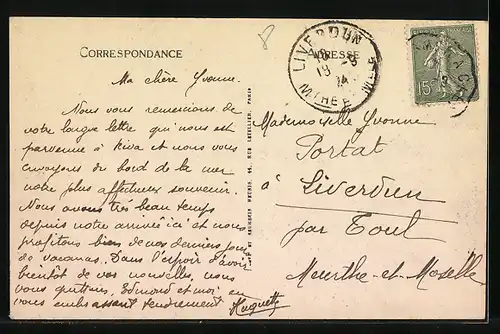 CORRESPONDANCE
ADRESSE
LIVERDUN
MTHE ET
15c
Ma chère Yvonne.
Nous vous remercions de
votre longue lettre qui nous est
parvenue à et nous vous
envoyons du bord de la mer
notre plus affectueux souvenir.
Nous avons très beau temps
depuis notre arrivée ici et nous
profitons bien de nos derniers jours
de vacances. Dans l'espoir d'avoir
bientôt de vos nouvelles, nous
vous quittons, Edmond et moi en
vous embrassant tendrement
Huguette
Mademoiselle Yvonne
Portat
à Liverdun
par Toul
Meurthe-et-Moselle